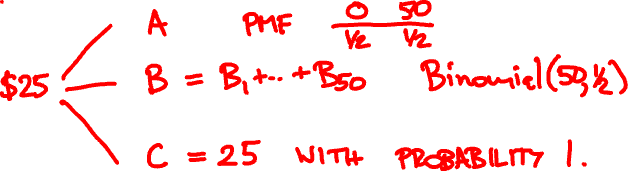 A PMF 0 50
1/2 1/2
$25 B = B₁+...+B₅₀ Binomial(50,½)
C = 25 WITH PROBABILITY 1.